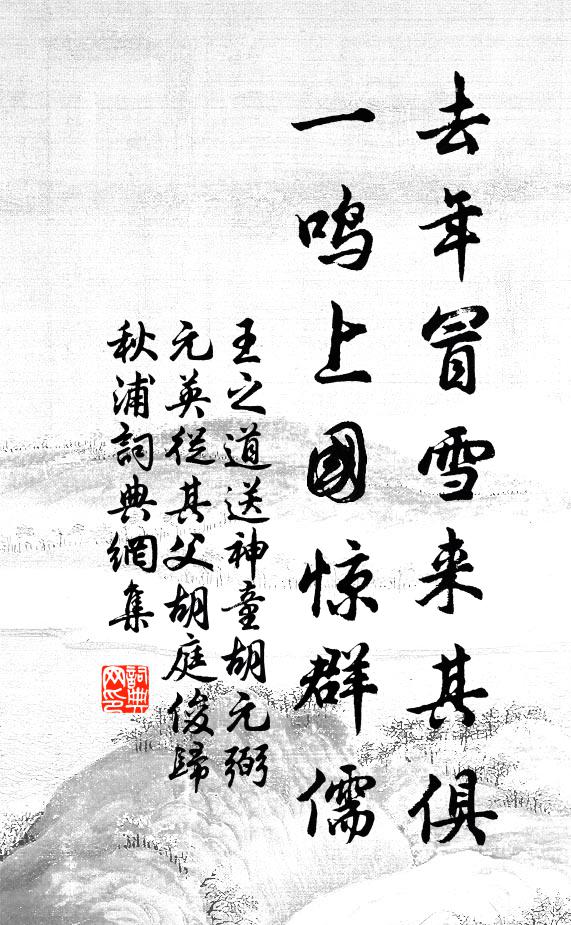 去年冒雪来其俱
一鸣上國惊群儒
王之道送神童胡元弼
元英從其父胡庭俊歸
秋浦詞典網集
詞典
网印